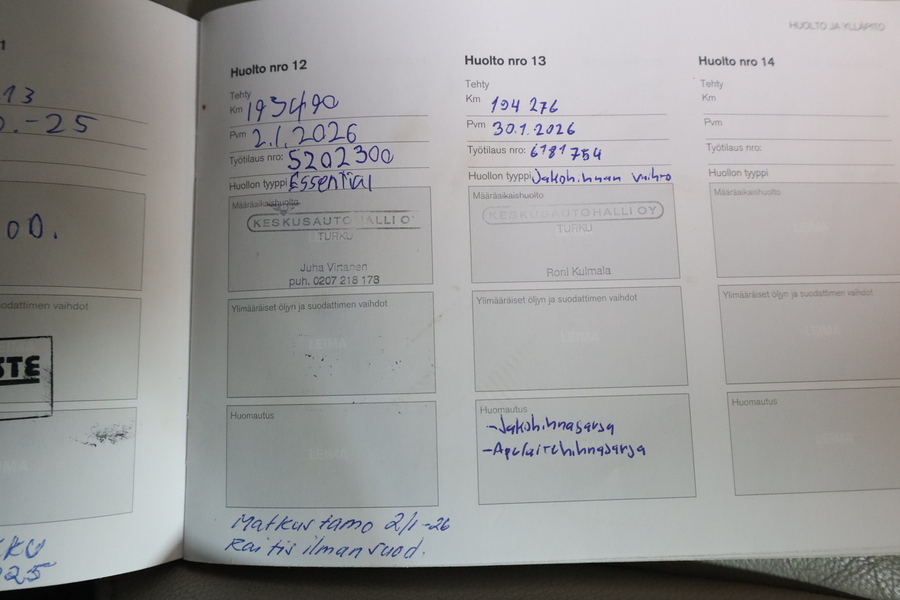 HUOLTO JA YLLÄPITO
13
.-25
OD.
odattimen vaihdot
STE
KKU
025
Huolto nro 12
Tehty
Km 193490
Pvm 2.1.2026
Työtilaus nro: 5202300
Huollon tyyppi Essential
Määräaikaishuolto
KESKUSAUTOHALLI OY
TURKU
Juha Virtanen
puh. 0207 218 178
Ylimääräiset öljyn ja suodattimen vaihdot
LEIMA
Huomautus
LEIMA
Matkustamo 2/1-26
Raitis ilman suod.
Huolto nro 13
Tehty
Km 194 276
Pvm 30.1.2026
Työtilaus nro: 6181754
Huollon tyyppi Jakohihnan vaihto
Määräaikaishuolto
KESKUSAUTOHALLI OY
TURKU
Roni Kulmala
Ylimääräiset öljyn ja suodattimen vaihdot
LEIMA
Huomautus
-Jakohihnasarja
-Apulaitehihnasarja
Huolto nro 14
Tehty
Km
Pvm
Työtilaus nro:
Huollon tyyppi
Määräaikaishuolto
Ylimääräiset öljyn ja suodattimen vaihdot
LEIMA
Huomautus